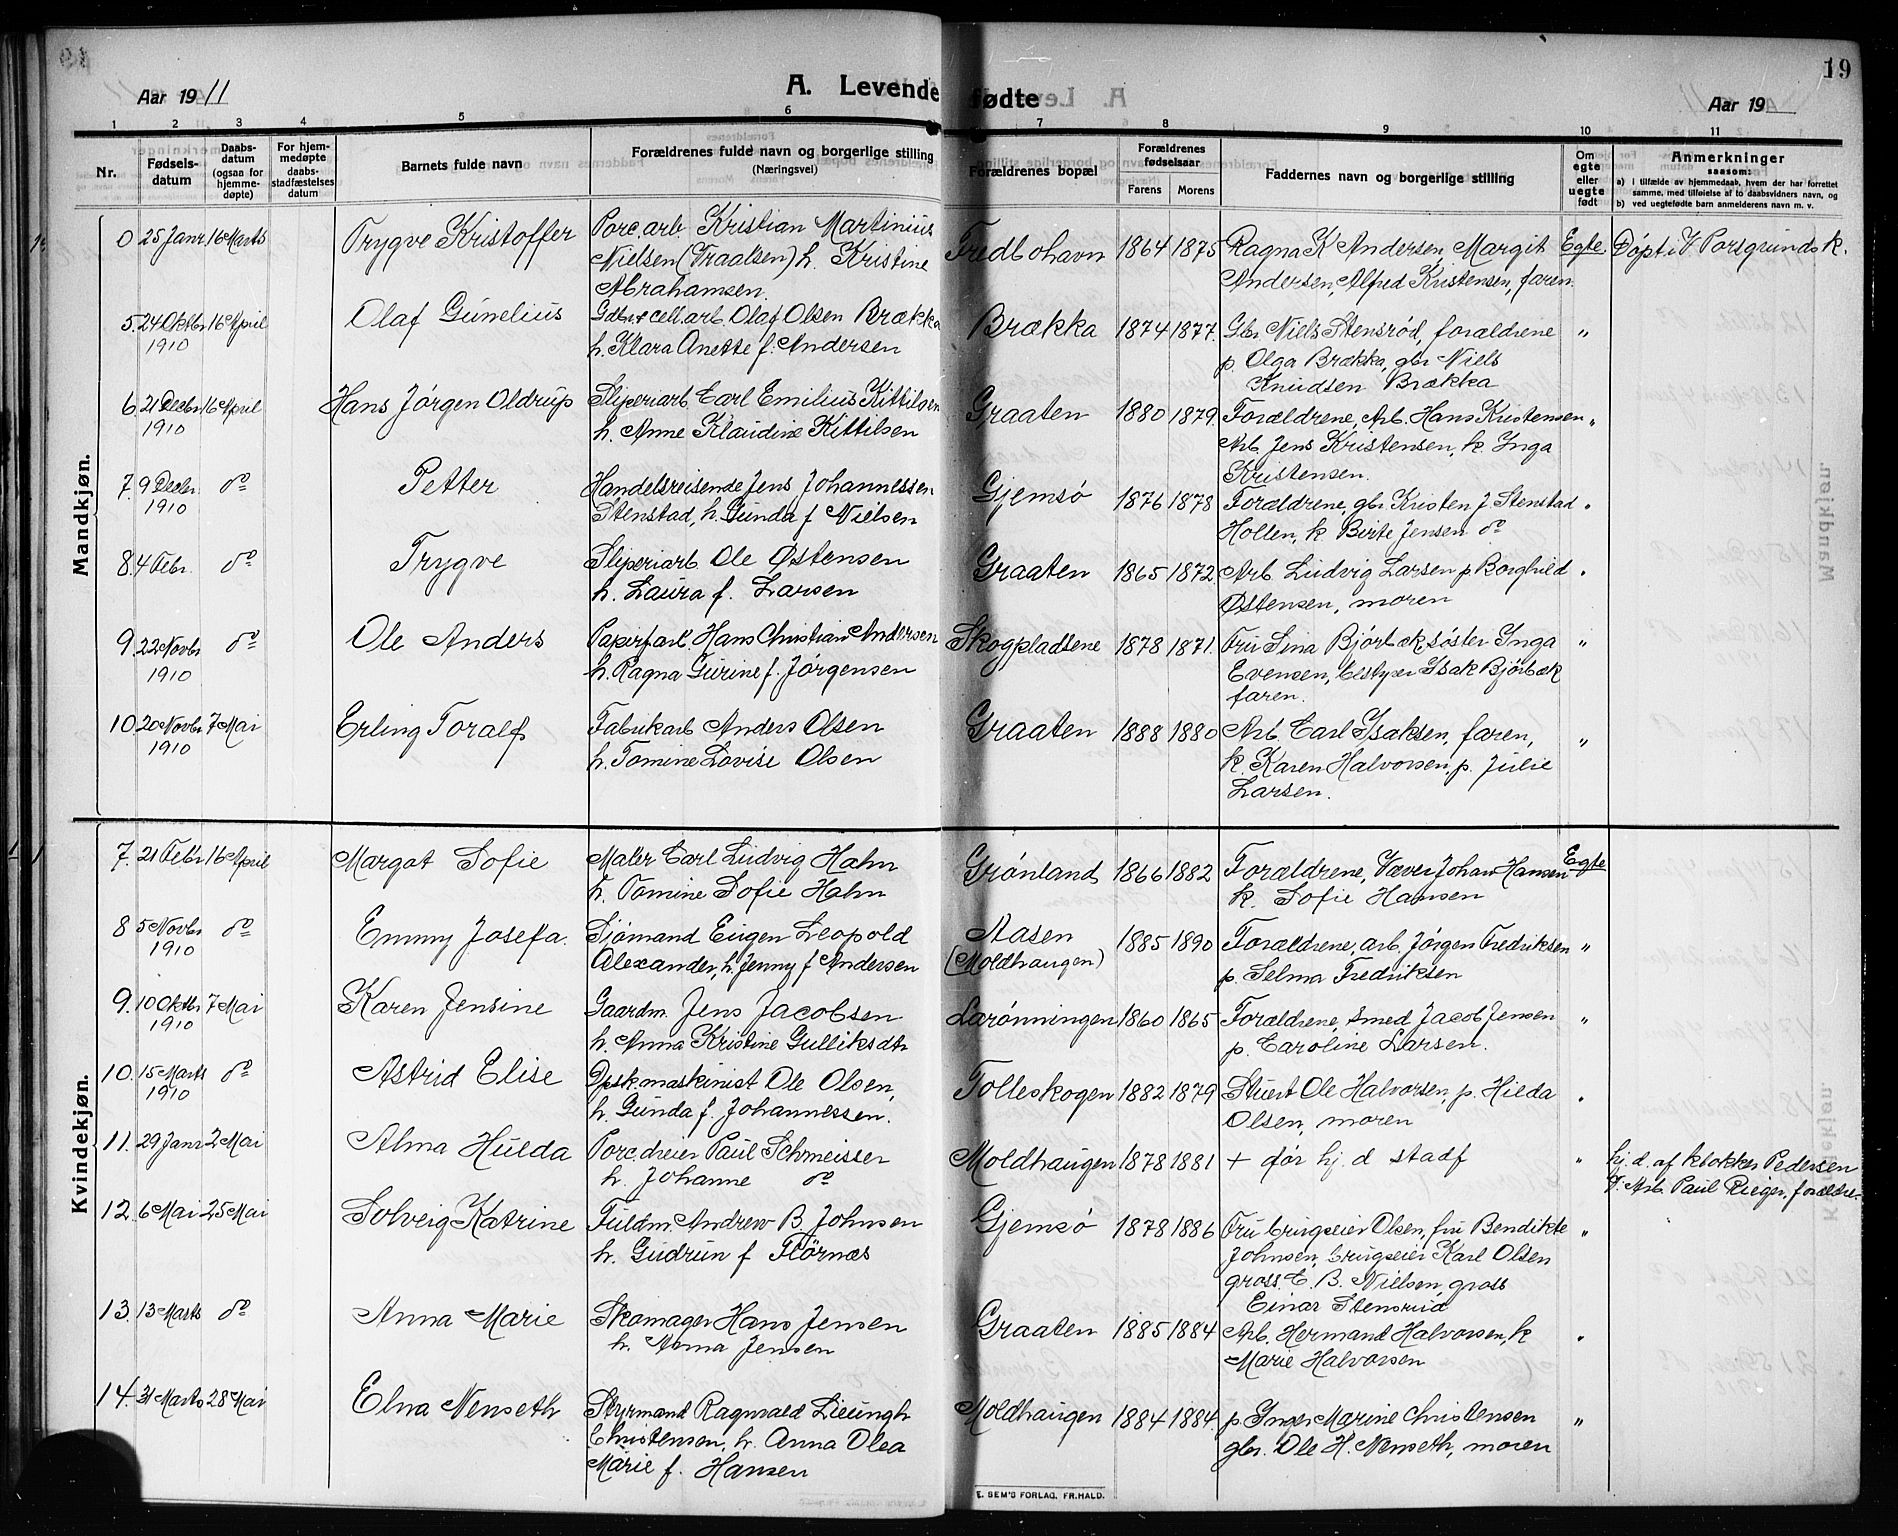 19
Aar 1911
A. Levende fødte
Aar 19
1 2 3 4 5 6 7 8 9 10 11
Nr.
Fødselsdatum
Daabsdatum (ogsaa for hjemmedøpte)
For hjemmedøpte daabsstadfæstelses datum
Barnets fulde navn
Forældrenes fulde navn og borgerlige stilling (Næringsvei)
Forældrenes bopæl
Forældrenes fødselsaar
Farens Morens
Faddernes navn og borgerlige stilling
Om egte eller uegte født
Anmerkninger
saasom:
a) i tilfælde av hjemmedaab, hvem der har forrettet samme, med tilføielse af to daabsvidners navn, og
b) ved uegtefødte barn anmelderens navn m. v.
Mandkjøn.
0 25 Janr 16 Marts Trygve Kristoffer Porc. arb Kristian Martinius Fredbohavn 1864 1875 Ragna K Andersen, Margit Egte Døpt i V Porsgrunds k.
Nielsen (Traalsen) h. Kristine Andersen, Alfred Kristensen, faren.
Abrahamsen.
5. 24 Oktbr 16 April Olaf Gunelius Gdbr & cell. arb. Olaf Olsen Brækka Brækka 1874 1877. Gbr Niels Stensrød, forældrene "
1910 h. Klara Anette f. Andersen p. Olga Brækka, gbr Niels
Knudsen Brækka
6. 21 Decbr 16 April Hans Jørgen Oldrup Sliperiarb. Carl Emilius Kittilsen Graaten 1880 1879. Forældrene, Arb. Hans Kristensen "
1910 h. Anne Klaudine Kittilsen Arb. Jens Kristensen, k. Inga
Kristensen.
7. 9 Decbr. do Petter Handelsreisende Jens Johannessen Gjemsø 1876 1878 Forældrene, gbr. Kristen J Stenstad "
1910 Stenstad, h. Gunda f Nielsen Hollen, k Birte Jensen do
8. 4 Febr. do Trygve Sliperiarb Ole Østensen Graaten 1865 1872. Arb. Ludvig Larsen p. Borghild "
h. Laura f. Larsen Østensen, moren
9. 22 Novbr do Ole Anders Papirfarb. Hans Christian Andersen Skogpladsene 1878 1871. Fru Lina Bjørbæk, søster Inga "
1910 h. Ragna Gurine f. Jørgensen Evensen, bestyrer Isak Bjørbæk
faren.
10. 20 Novbr 7 Mai Erling Toralf Fabrikarb Anders Olsen Graaten 1888 1880 Arb. Carl Isaksen, faren, "
1910 h. Tomine Lovise Olsen k. Karen Halvorsen, p. Julie
Larsen.
Kvindekjøn.
7. 21 Febr 16 April Margot Sofie Maler Carl Ludvig Hahn Grønland 1866 1882 Forældrene, Væver Johan Hansen Egte
h. Tomine Sofie Hahn k. Sofie Hansen
8 5 Novbr do Emmy Josefa. Sjømand Eugen Leopold Aasen 1885 1890 Forældrene, arb. Jørgen Fredriksen "
1910 Alexander, h. Jenny f Andersen (Moldhaugen) p. Selma Fredriksen
9. 10 Oktbr 7 Mai Karen Jensine Gaardm. Jens Jacobsen Larønningen 1860 1865 Forældrene, smed Jacob Jensen "
1910 h. Anna Kristine Gulliksdtr p. Caroline Larsen.
10. 15 Marts do Astrid Elise Dpsk. maskinist Ole Olsen, Tolleskogen 1882 1879 Stuert Ole Halvorsen, p. Hilda "
1910 h. Gunda f. Johannessen. Olsen, moren
11. 29 Janr 2 Mai Alma Hulda Porc. dreier Paul Schmeisser Moldhaugen 1878 1881 + før hj. d stadf " hj. d. af klokker Pedersen
h. Johanne do V. Arb. Paul Rieger, forældre.
12. 6 Mai 25 Mai Solveig Katrine Fuldm. Andrew B. Johnsen Gjemsø 1878 1886 Fru brugseier Olsen, fru Bendikte "
h. Gudrun f Flörnæs Johnsen, brugseier Karl Olsen
gross. C. B. Nielsen, gross
Einar Stensrud
13. 13 Marts do Anna Marie Skomager Hans Jensen Graaten 1885 1884 Arb. Hermand Halvorsen, k "
h. Anna Jensen Marie Halvorsen
14. 31 Marts 28 Mai Elna Nenseth Styrmand Ragnvald Lieungh Moldhaugen 1884 1884. p Inger Marine Christensen "
Christensen, h. Anna Olea gbr. Ole H. Nenseth, moren
Marie f. Hansen
E. SEM'S FORLAG, FR.HALD.